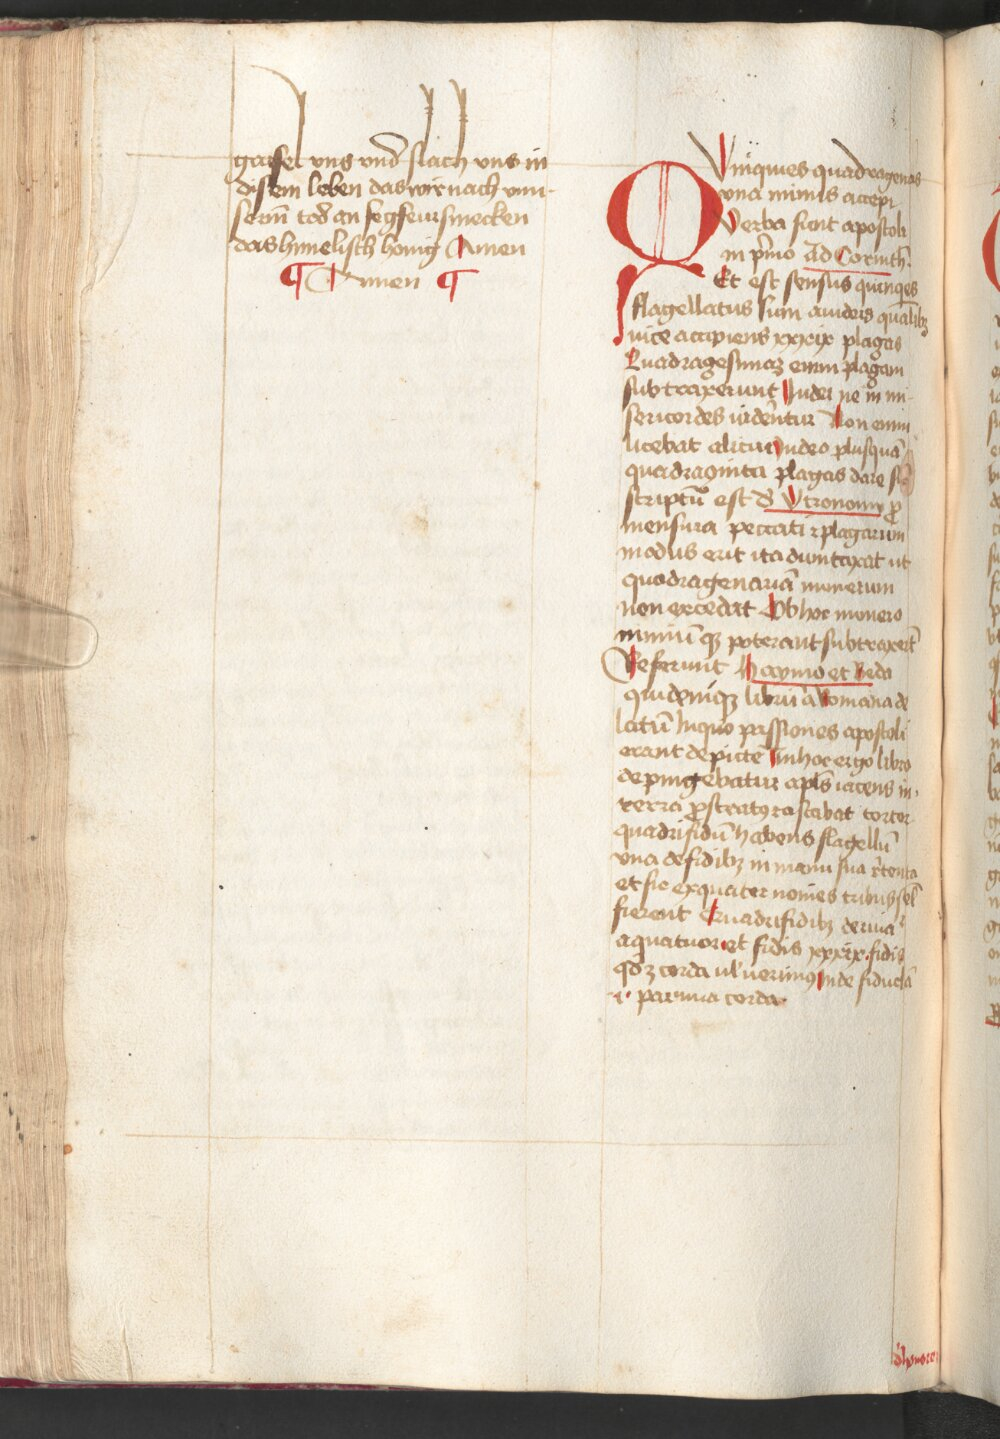 gaisel vns vnd slach vns in
disem leben das wir nach vnn¬
serm tod an fegfeur smecken
das himelisch honig Amen
¶ Amen ¶
QVinquies quadragenas
vna minus accepi
Verba sunt apostoli
in pͥmo Ad Corinth.
Et est sensus quinqies
flagellatus sum a iudeis qualibꝫ
uice accipiens xxxix plagas
Quadragesimaꝫ enim plagam
subtraxerunt Iudei ne in mi¬
sericordes uiderentur Non enim
licebat alicui Iudeo plusquā
quadraginta plagas dare sic
scriptū est deVtronomii pro
mensura peccati ⁊ plagarum
modus erit ita duntaxat ut
quadragenariā numerum
non excedat Ob hoc numero
nimiū qꝫ poterant subtraxert̄
Referunt Haymo et Beda
quidemqꝫ librū a Romana de
latū Inquo passiones apostoli
erant depicte Inhoc ergo libro
depingebatur apl̄s iacens in
terra prostratus astabat tortor
quadrifidū habens flagellū
vna de fidibꝫ in manu sua retenta
et sic ex quater nouies tribus
fierent Quadrifidibꝫ deriua
a quatuor et fidis xxxix fidis
qd̄ꝫ corda ul' uerimus Inde fidiclā
.i. paruula corda